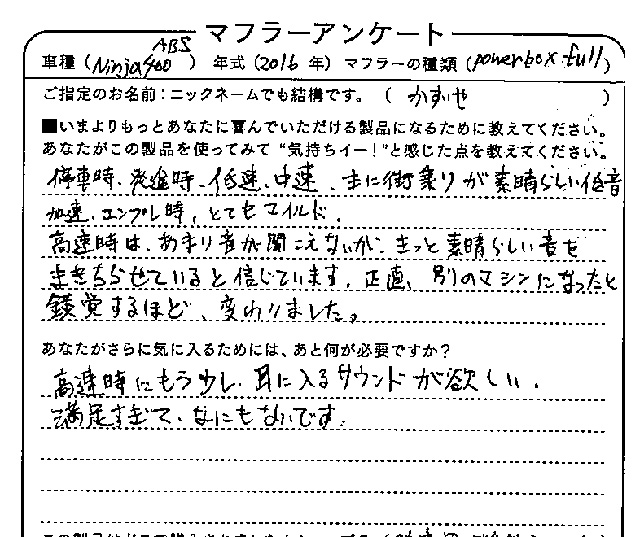 マフラーアンケート
車種（Ninja400 ABS）年式（2016年）マフラーの種類（powerbox full）
ご指定のお名前：ニックネームでも結構です。（かずや）
■いまよりもっとあなたに喜んでいただける製品になるために教えてください。
あなたがこの製品を使ってみて“気持ちイー！”と感じた点を教えてください。
停車時、発進時、低速、中速、主に街乗りが素晴らしい低音
加速、エンブレ時、とてもマイルド。
高速時は、あまり音が聞こえないが、きっと素晴らしい音を
まきちらせていると信じています。正直、別のマシンになったと
錯覚するほど、変わりました。
あなたがさらに気に入るためには、あと何が必要ですか？
高速時にもう少し、耳に入るサウンドが欲しい。
満足すぎて、なにもないです。